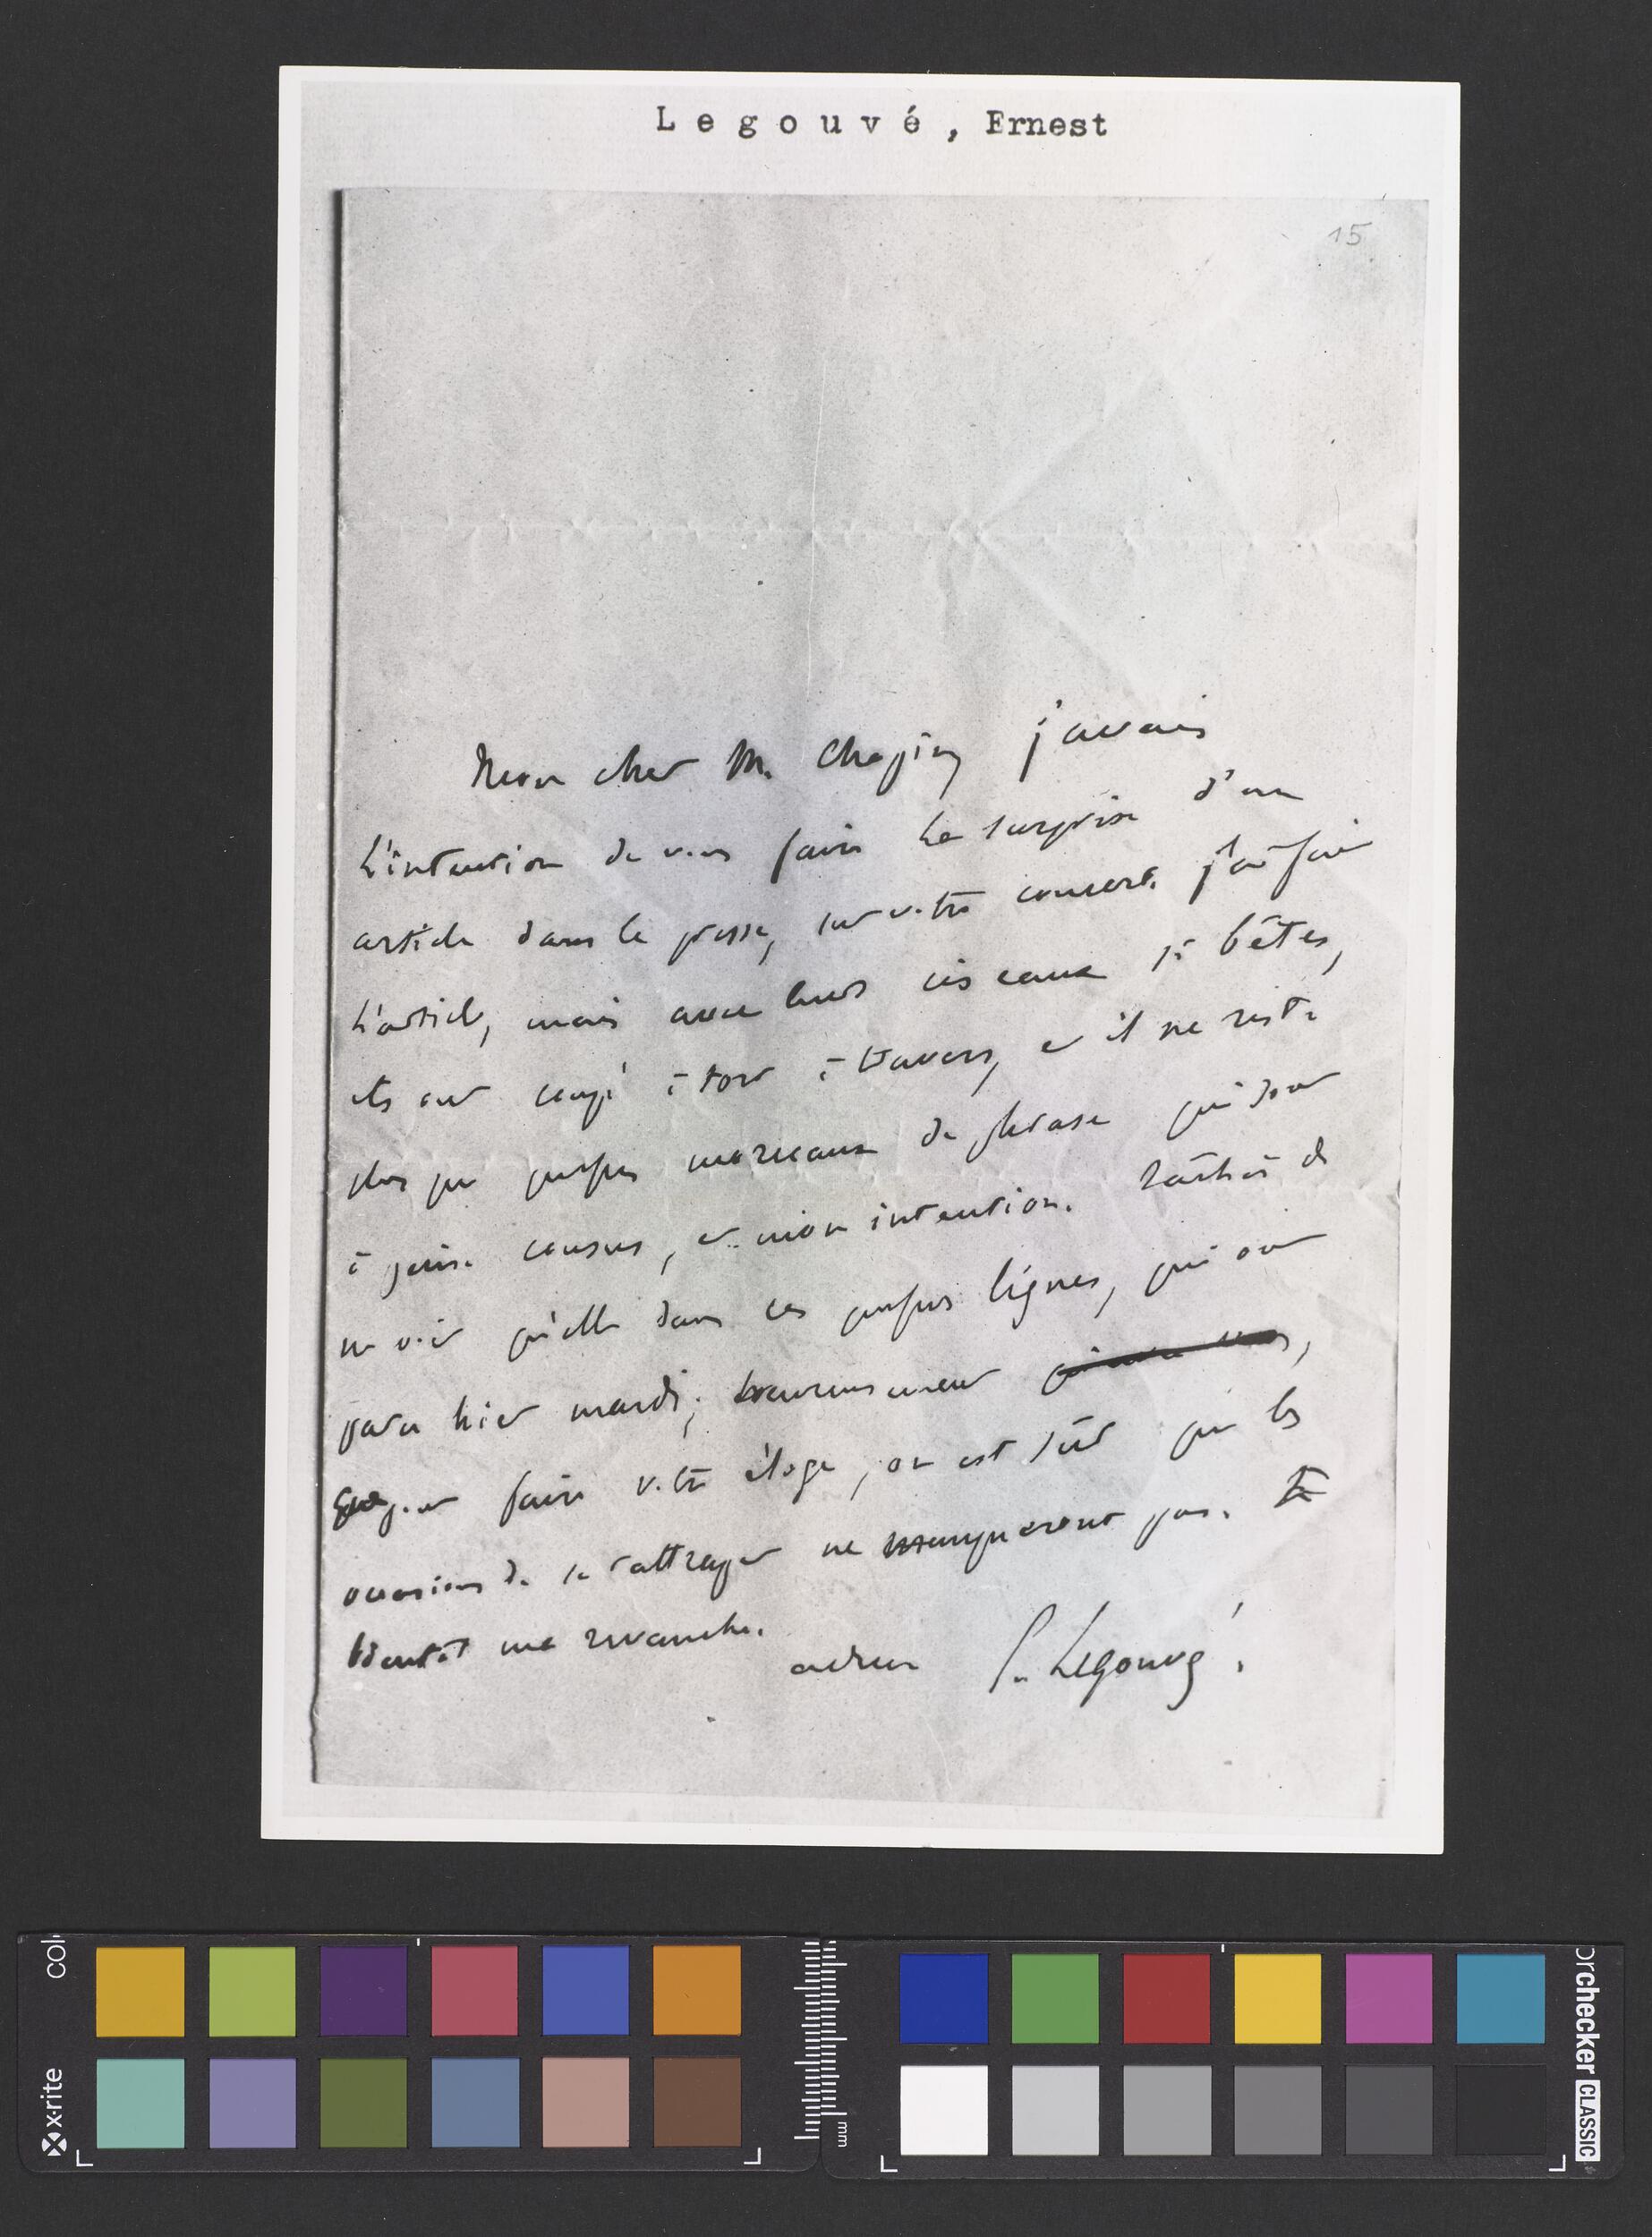 Legouvé, Ernest
15
Mon cher M. Chopin j'avais
l'intention de vous faire la surprise d'un
article dans la presse, sur votre concert. j'ai fait
l'article, mais avec leurs ciseaux si bêtes,
ils ont coupé à tort à travers, et il ne reste
plus que quelques morceaux de phrase qui sont
à peine cousus, et mon intention. Tâchez de
ne voir qu'elle dans ces quelques lignes, qui ont
paru hier mardi; heureusement
que pour faire votre éloge, on est sûr que les
occasions de se rattraper ne manqueront pas.
bientôt ma revanche.
adieu E. Legouvé
col
x-rite
mm
orchecker CLASSIC